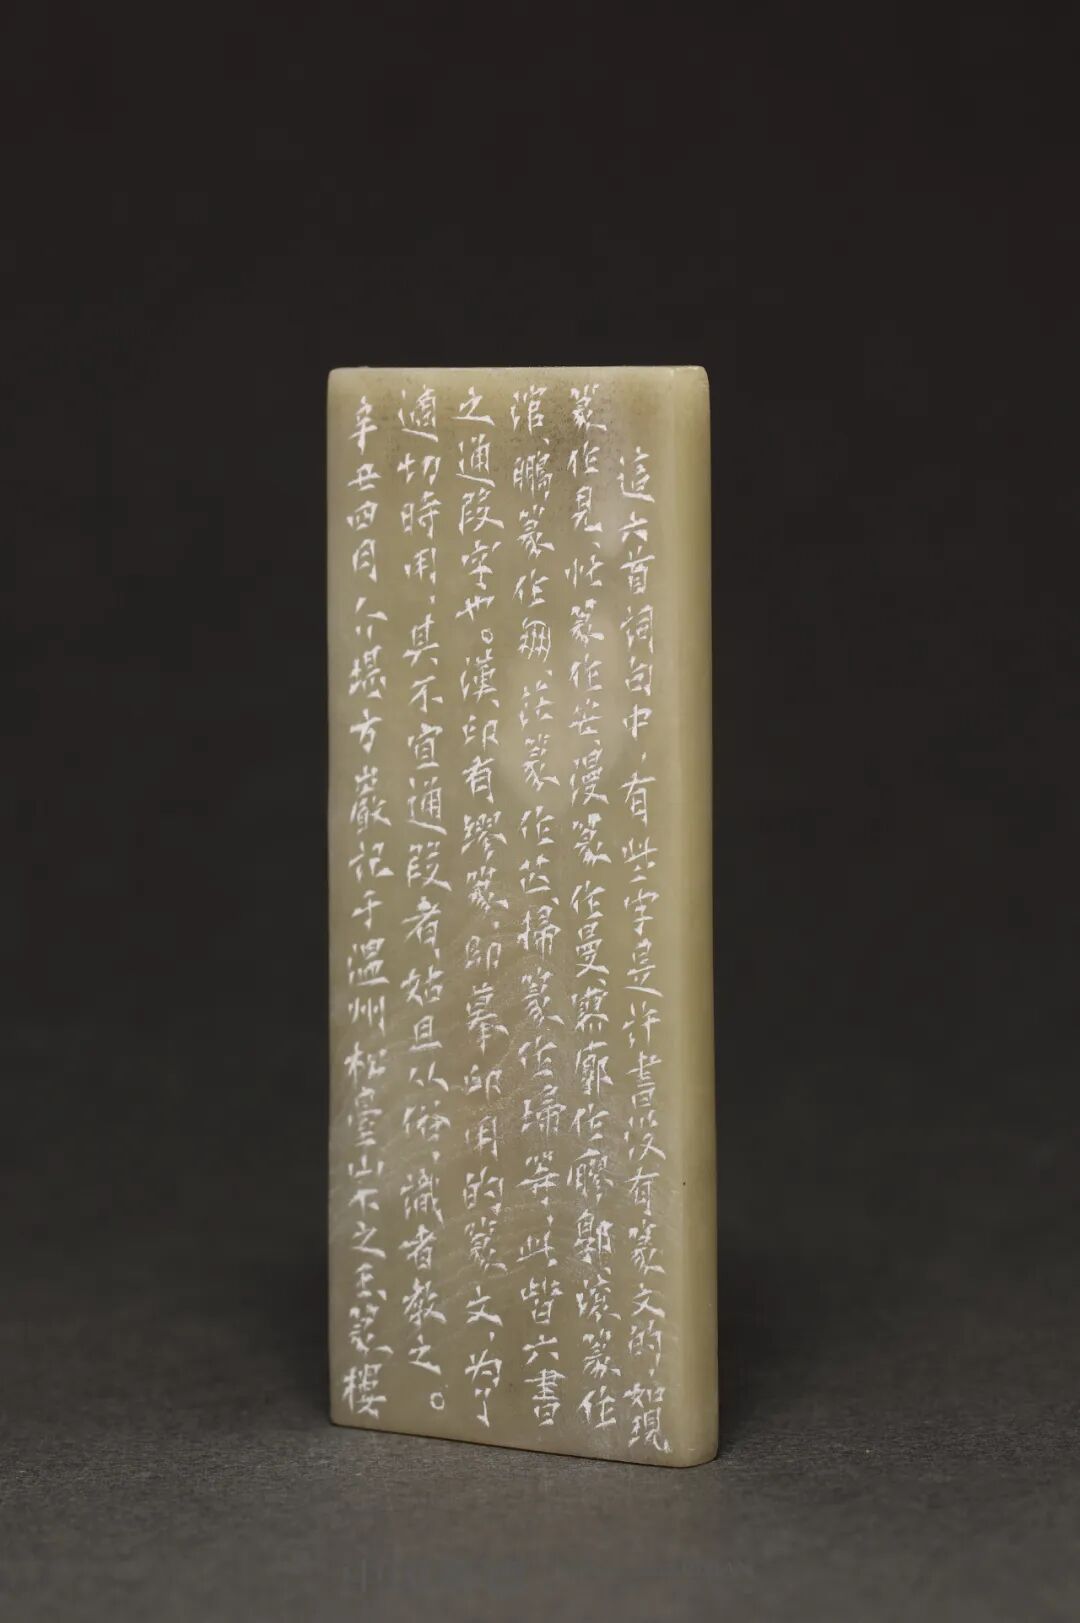 這六首詞句中，有些字是許書没有篆文的，如現
篆作見、恾篆作芒、漫篆作曼、寥廓作廫𩫏、滚篆作
涫、鵬篆作朋、茫篆作芒、掃篆作埽等，此皆六書
之通叚字也。漢印有繆篆，即摹印用的篆文，为了
適切時用，其不宜通叚者，姑且从俗，識者教之。
辛丑四月介堪方巖記于溫州松臺山下之玉篆樓